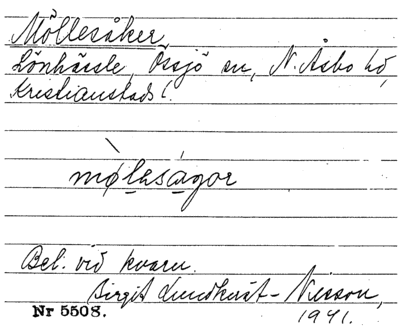 Möllesåker,
Lönhässle, Össjö sn, N. Åsbo hd,
Kristianstads l.
mø̀lesågor
Bel. vid kvarn.
Birgit Lundkvist-Nilsson,
1941.
Nr 5508.